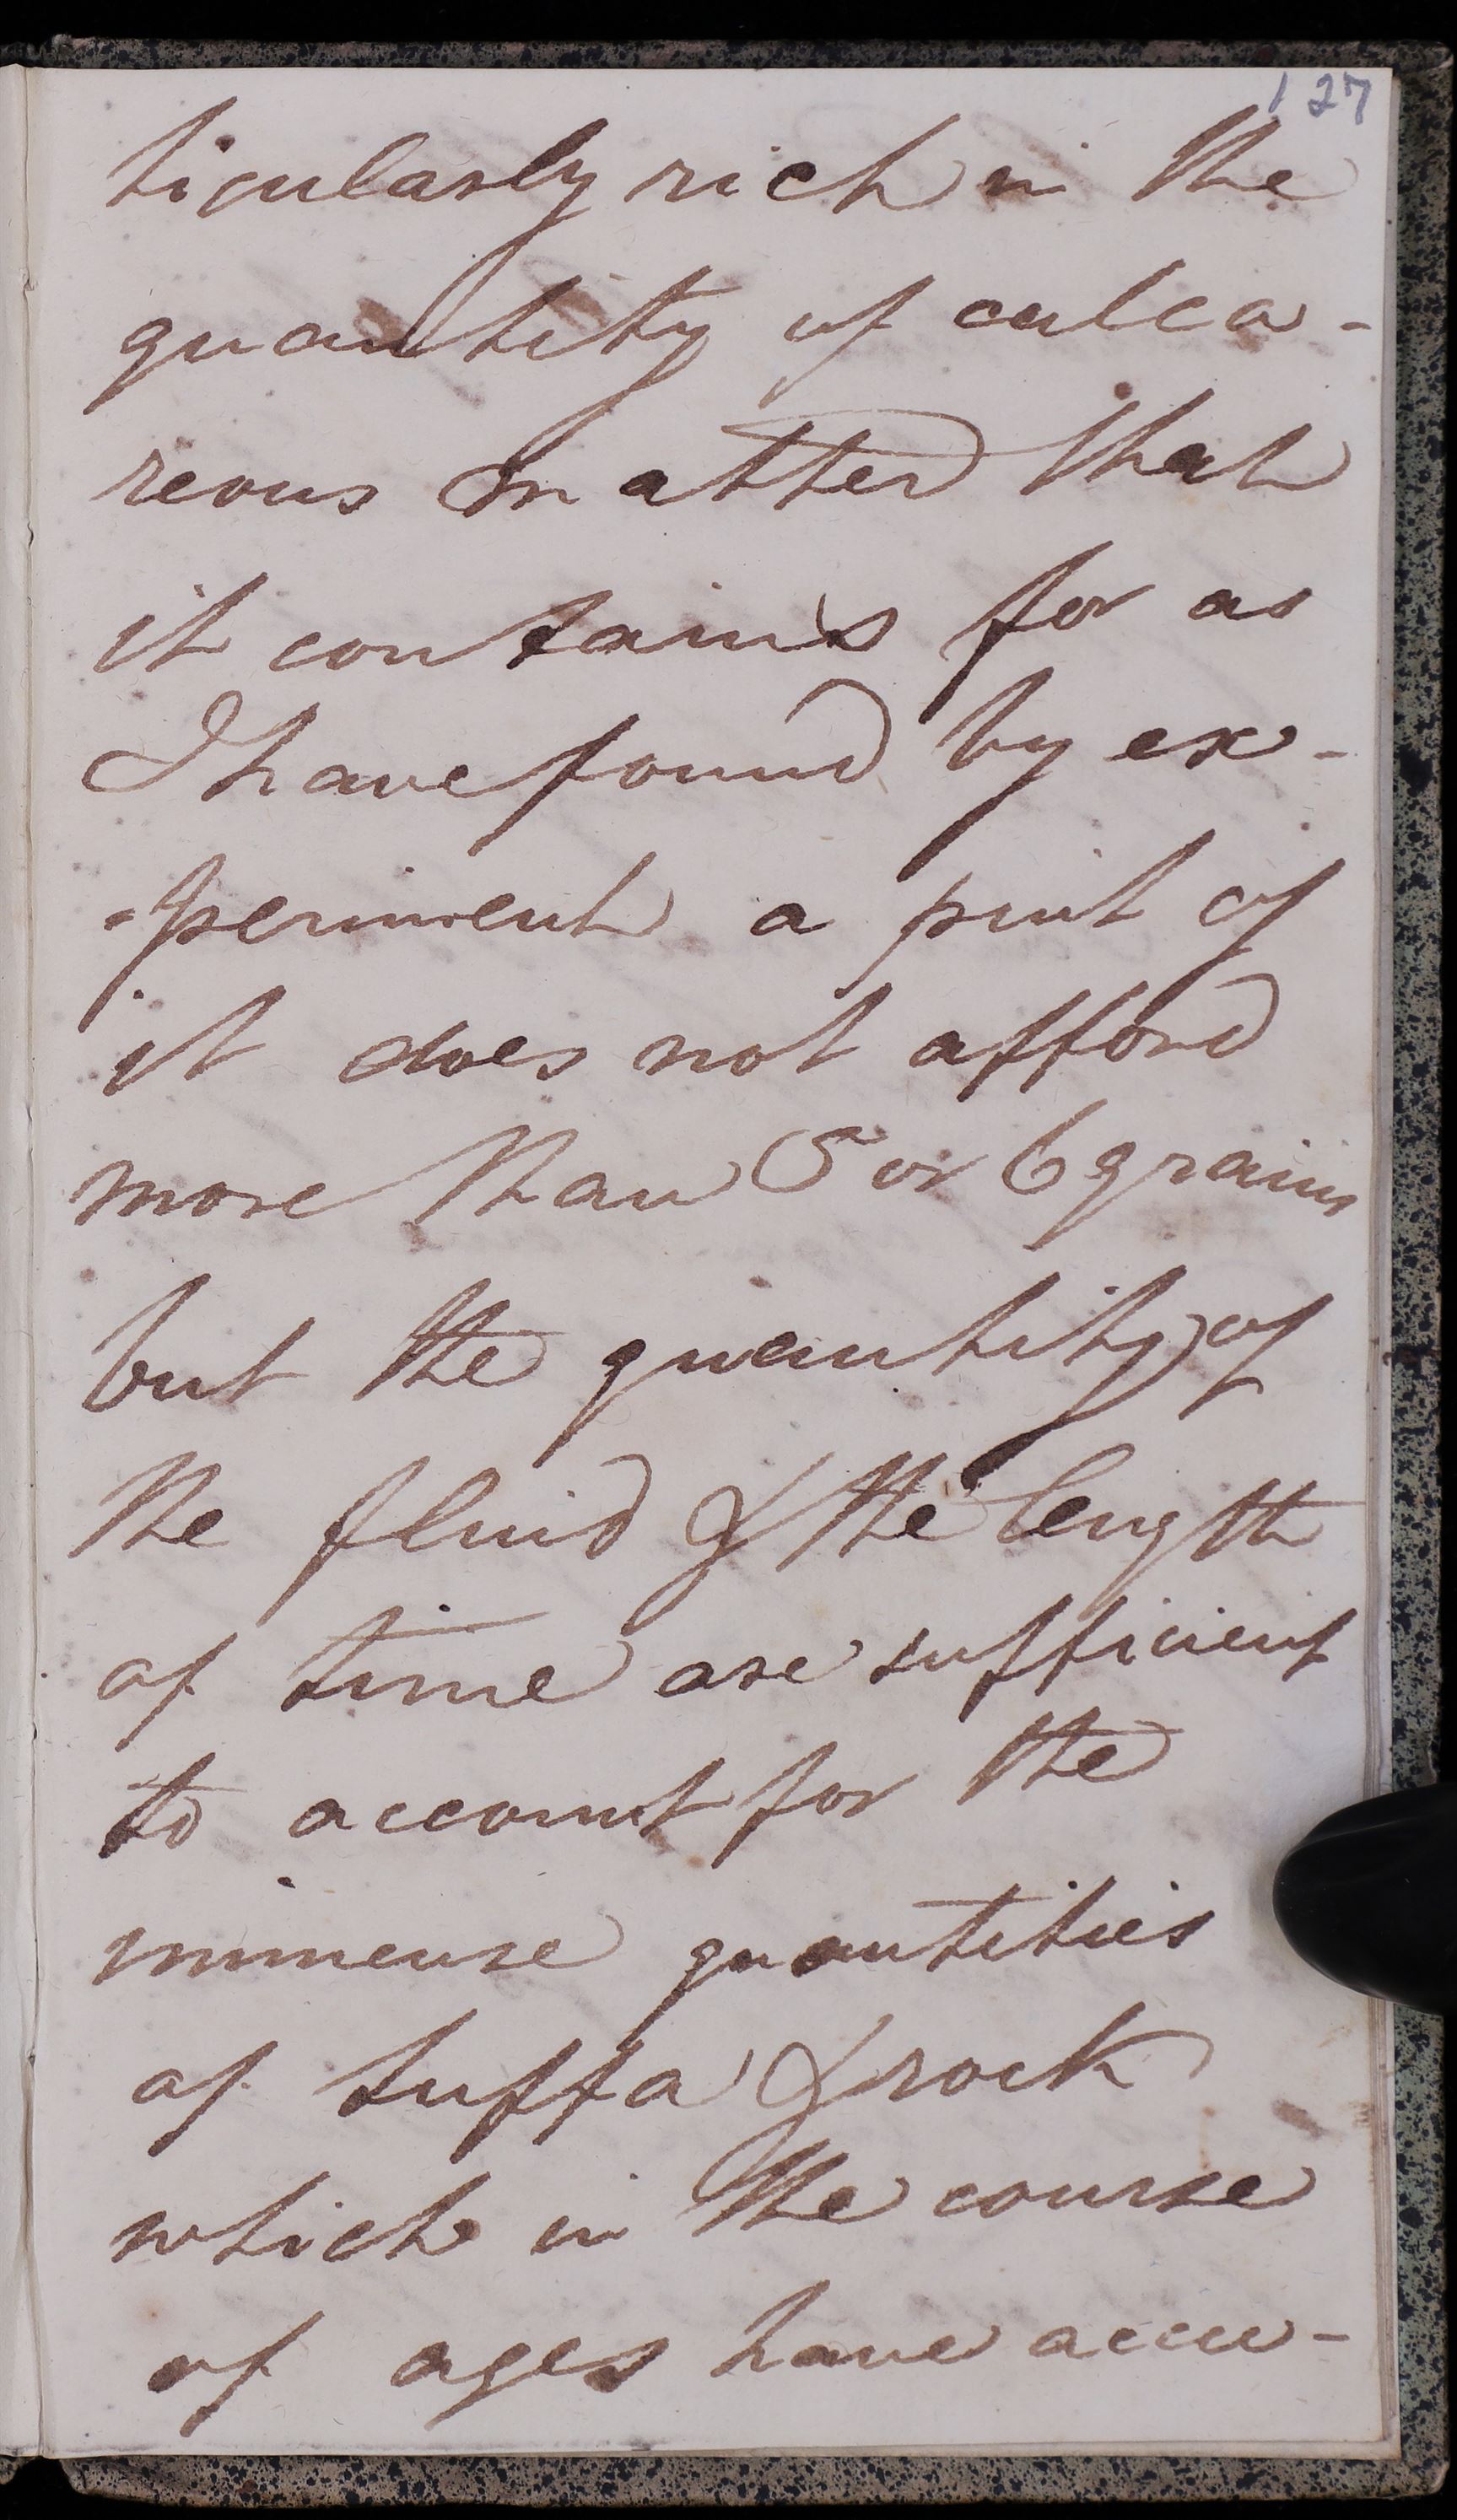 127
ticularly rich in the
quantity of calca-
reous matter that
it contains for as
I have found by ex-
-periment a pint of
it does not afford
more than 5 or 6 grains
but the quantity of
the fluid & the length
of time are sufficient
to account for the
immense quantities
of tuffa & rock
which in the course
of ages have accu-